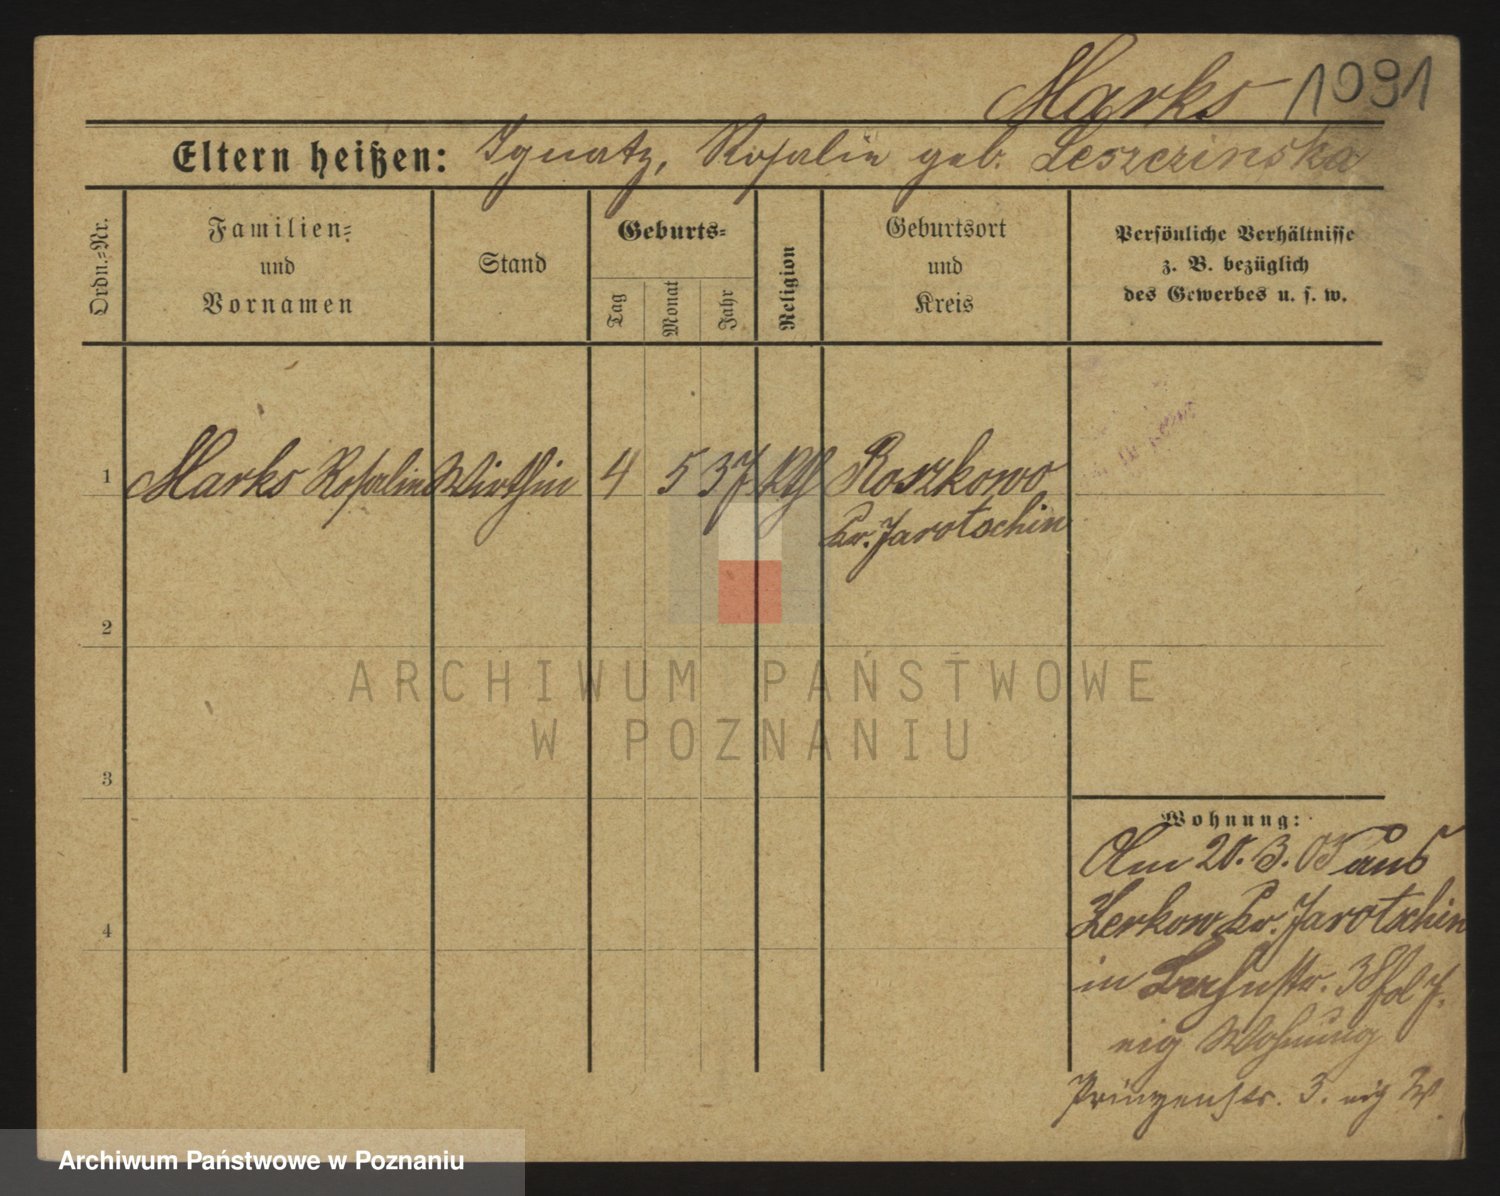 Marks 1091
Eltern heißen: Ignatz, Rosalie geb. Leszczinska
Ordn.-Nr.
Familien- und Vornamen
Stand
Geburts-
Tag
Monat
Jahr
Religion
Geburtsort und Kreis
Persönliche Verhältnisse
z. B. bezüglich
des Gewerbes u. s. w.
1 Marks Rosalie Wirthin 4 5 37 kth Roszkowo
Kr. Jarotschin
2
3
4
Wohnung:
Am 20. 3. 05 aus
Zerkow Kr. Jarotschin
in 38
eig Wohnung
Prinzenstr. 3. eig W.
ARCHIWUM PAŃSTWOWE
W POZNANIU
Archiwum Państwowe w Poznaniu